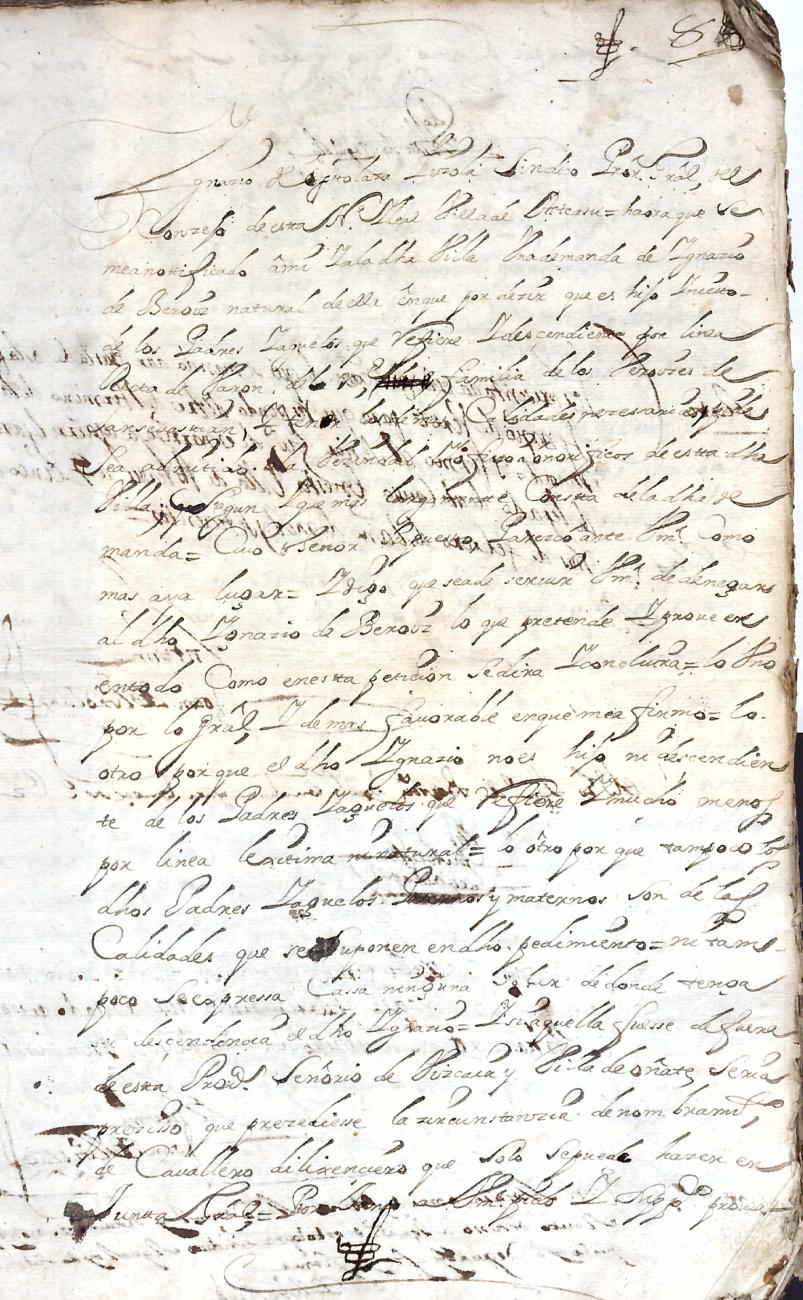 8
Ygnacio de
Sindico Prôr. Grâl, del
Conzejo de esta N. Y Leal Villa de = haora que se
me a nottificado â mi Y a la dha Villa Vna demanda de Ygnazio
de Beroiz natural de ella ênque por dezir que es hijo
de los Padres Y aguelos que Refiere Y descendiente por linea
Recta de Varon de la familia de los Beroizes de
sansevastian, Calidades nezesarias
sea admitido honorificos de esta dha
Villa, segun Y que mas largamente Consta de la dha de
manda = Cuio thenor Parezco ante Vm. Como
mas aya lugar = Y digo que se a de servir Vm. de denegar
al dho Ygnazio de Beroiz lo que pretende Y proveer
en todo Como en estta peticion se dira Y concluira = lo Vno
por lo Grâl, Y demas favorable en que me afirmo = lo.
otro porque el dho Ygnazio no es hijo ni descendien
te de los Padres Y aguelos que Refiere Y mucho menos
por linea lexitima ni natural = lo ôtro por que tampoco los
dhos Padres Y aguelos Paternos y maternos son de las
Calidades que se suponen en dho pedimiento = ni tam-
poco se expressa Cassa ninguna Solar de donde tenga
su descendencia el dho Ygnazio = Y si aquella fuesse de fuera
de esta Prov. Señorio de Vizcaia y Villa de oñate, seria
preziso que prezediesse la zircunstanzia de nombram.to
de Cavallero dilixenciero que solo se puede hazer en
Juntta Grâl = Por tanto a Vm. pido Y Supp.co provea